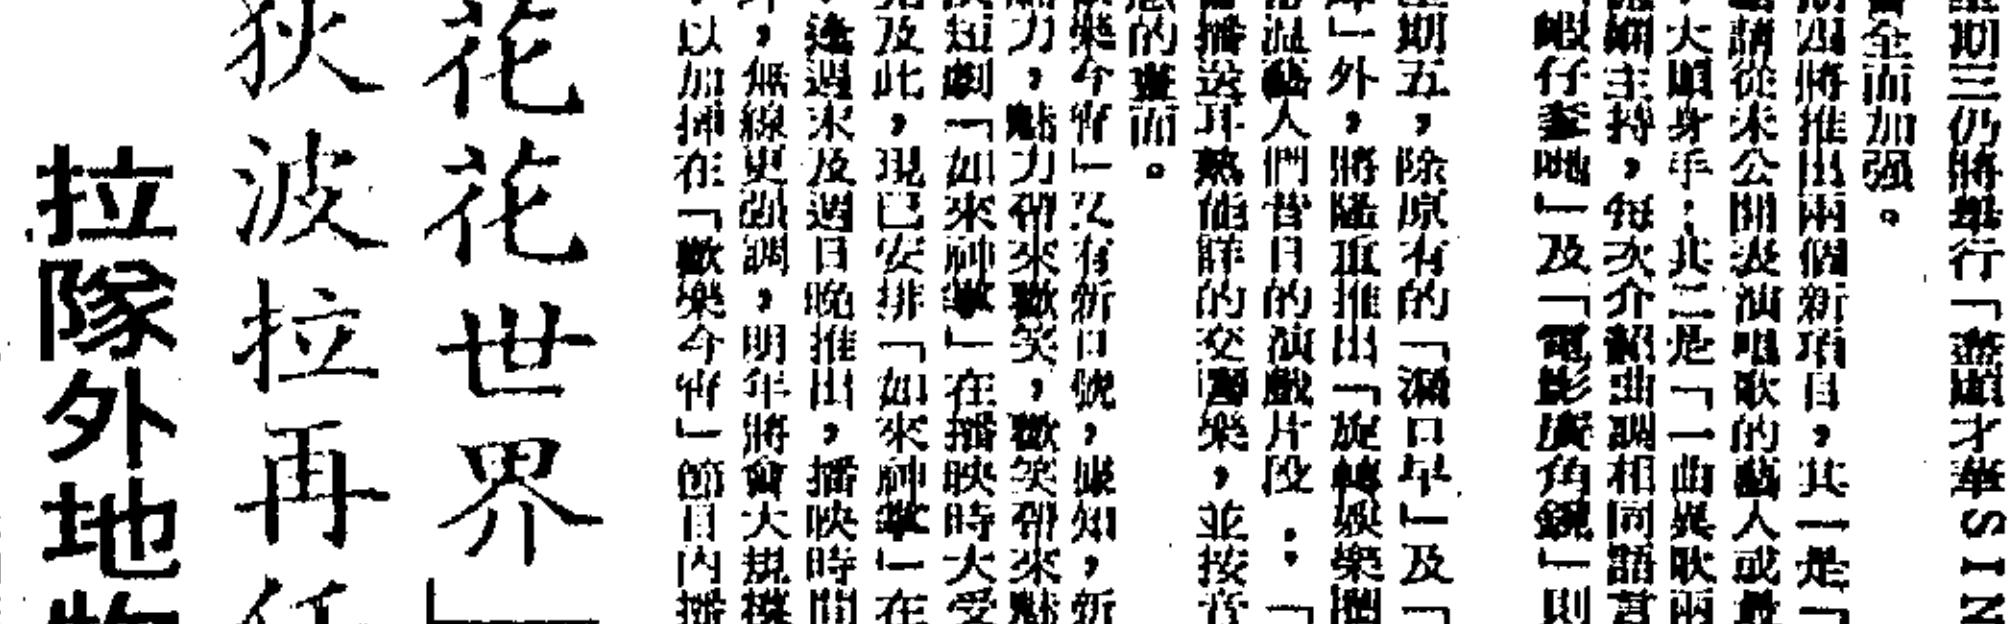 期三仍將舉行「盡顯才華SIN
會全面加强。
期四將推出兩個新項目，其一是「
邀請從未公開表演唱歌的藝人或
大顯身手；其二是「一曲異歌兩
主持，每次介紹曲調相同語言
蝦仔爹哋」及「電影廣角鏡」則
星期五，除原有的「漏口早」及「
」外，將隆重推出「旋轉娛樂圈
溫藝人們昔日的演戲片段；「
播送耳熟能詳的交響樂，並按音
的畫面。
歡樂今宵」又有新口號，據知，新
力，魅力帶來歡笑，歡笑帶來魅
短劇「如來神掌」在播映時大受
及此，現已安排「如來神掌」在
逢週末及週日晚推出，播映時間
，無線更强調，明年將會大規模
以加插在「歡樂今宵」節目內播
花花世界」
狄波拉再任
拉隊外地物